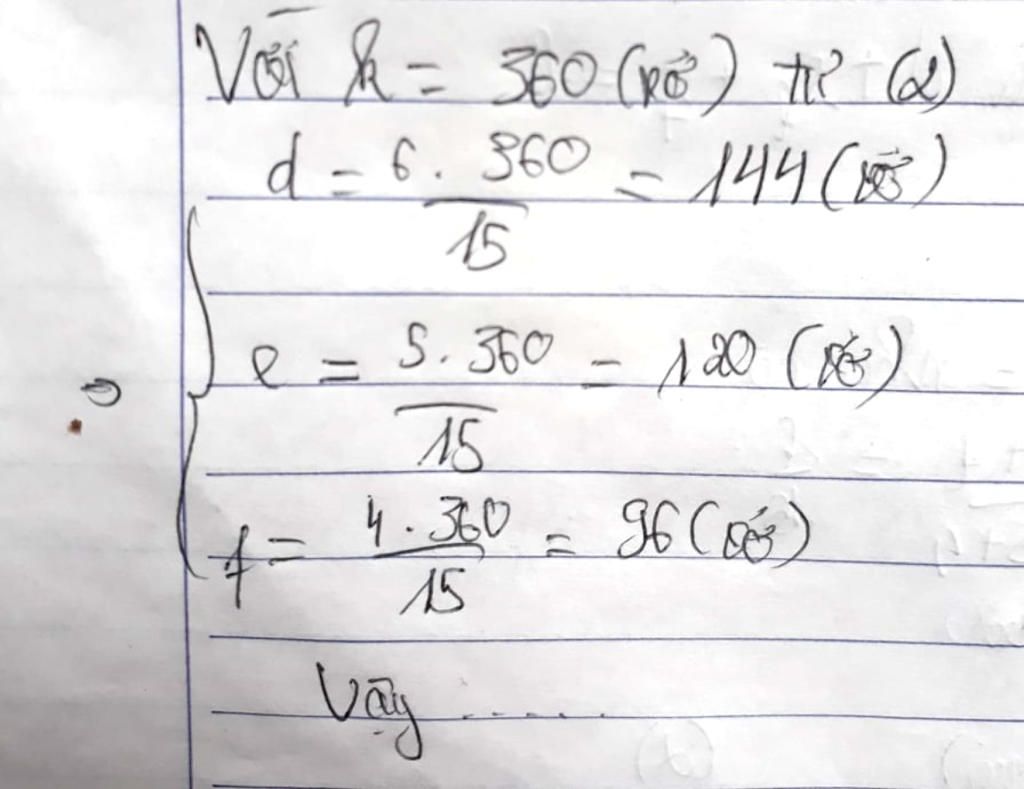 Với k = 360 (vở) từ (2)
d = 6 . 360 / 15 = 144 (vở)
e = 5 . 360 / 15 = 120 (vở)
f = 4 . 360 / 15 = 96 (vở)
Vậy ......